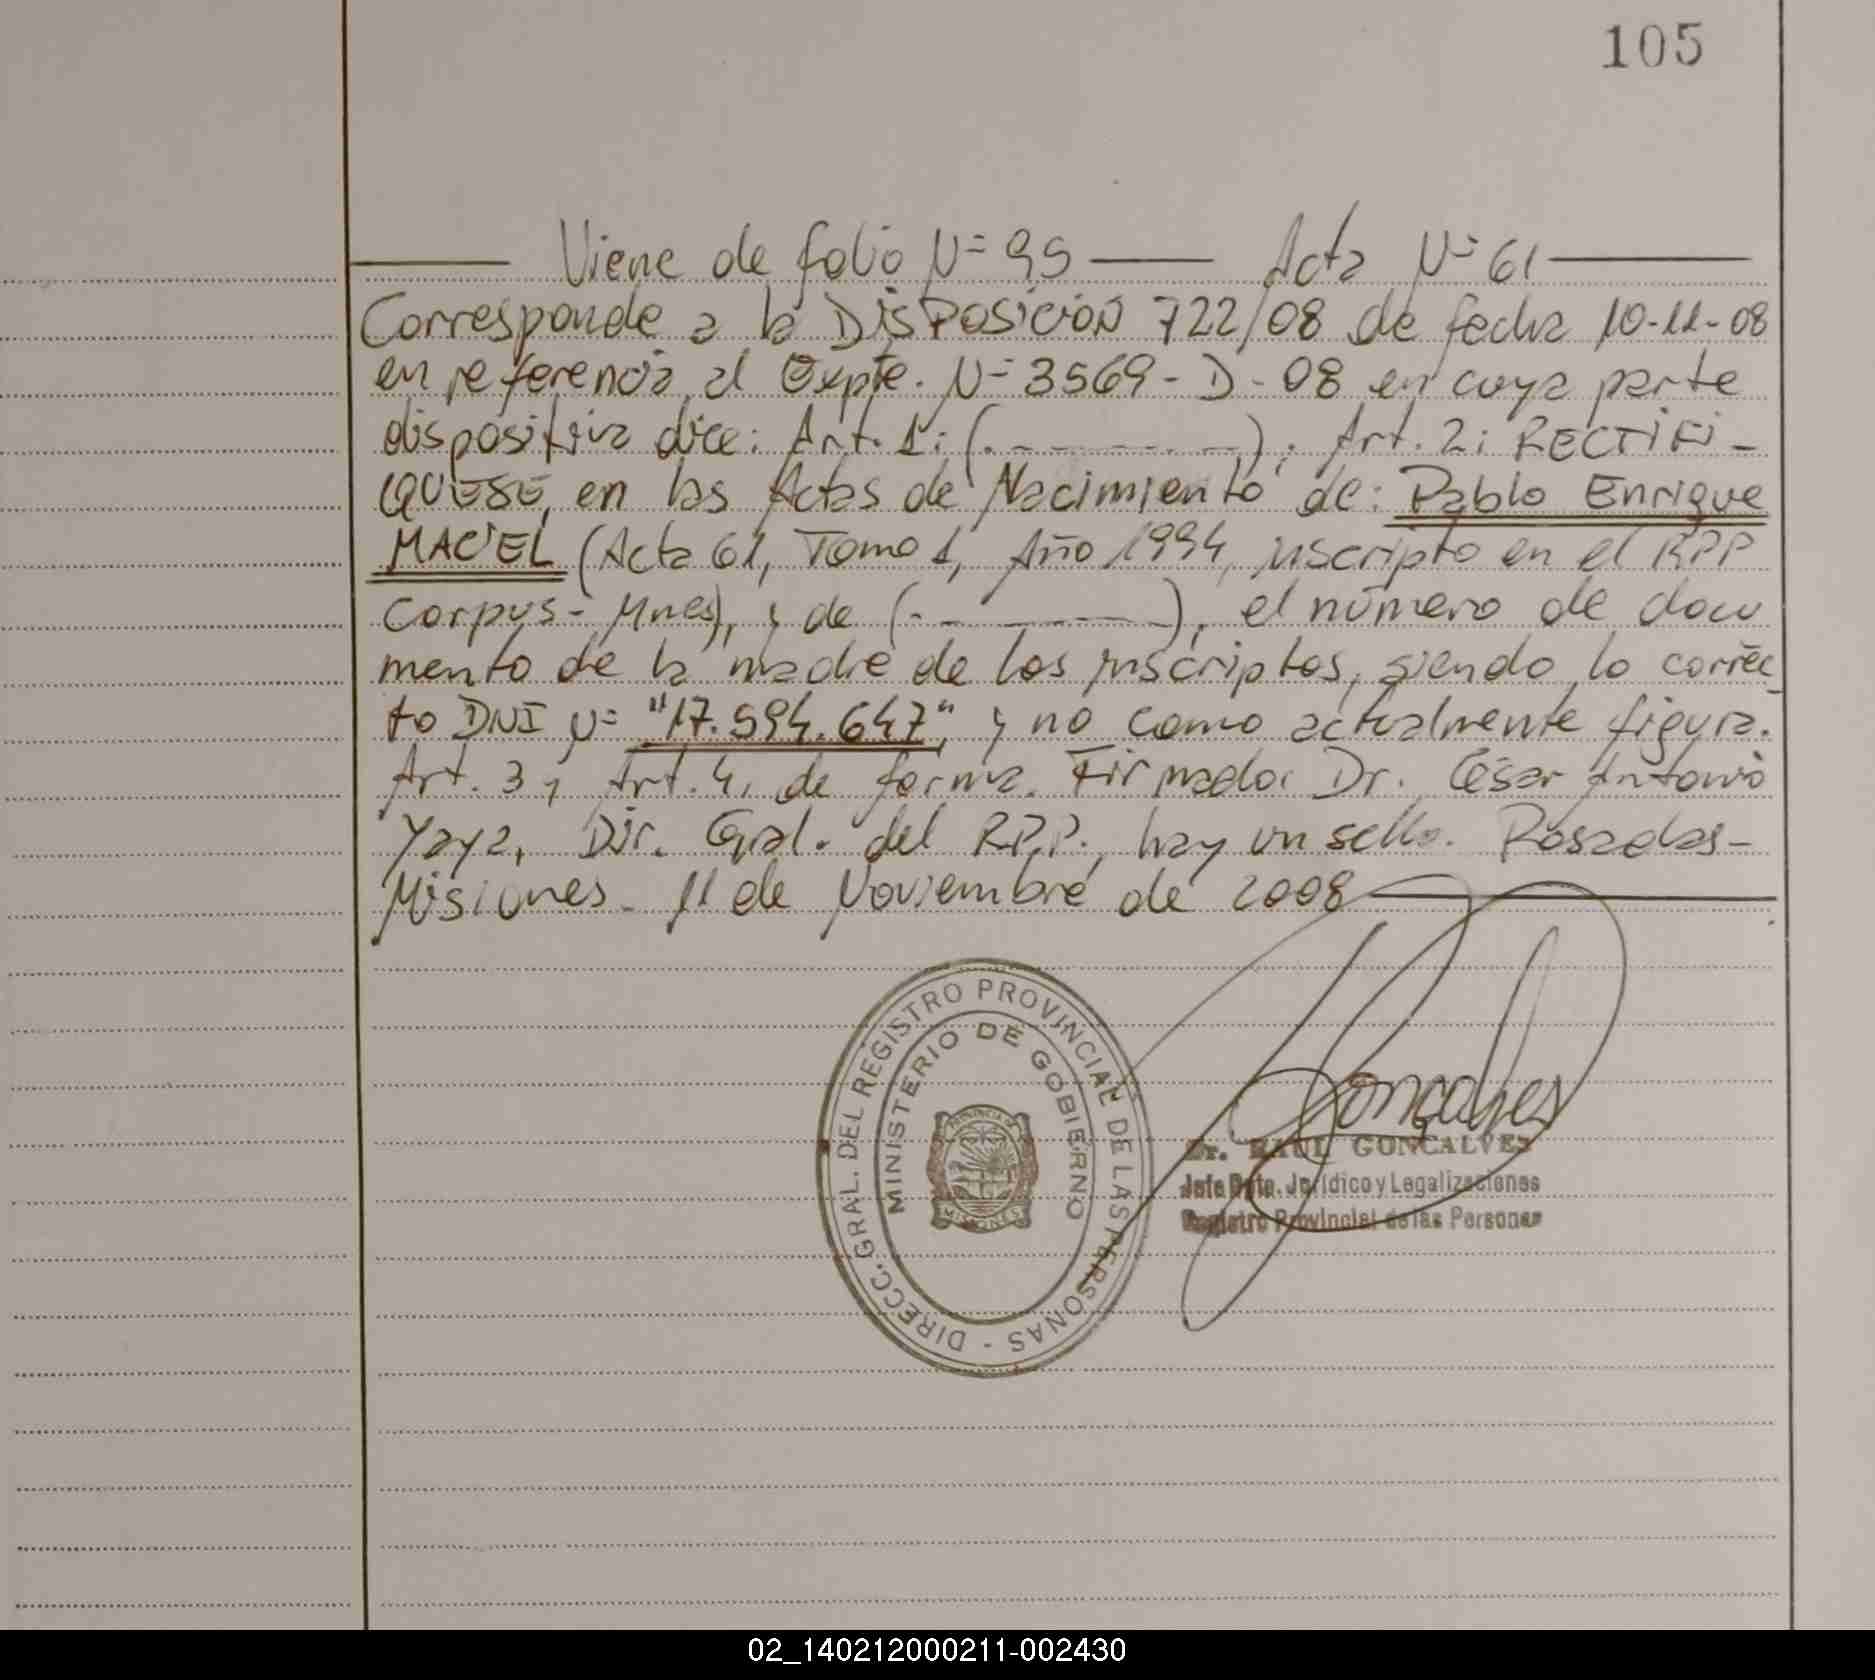 105
Viene de folio Nº 95 — Acta Nº 61
Corresponde a la DISPOSICIÓN 722/08 de fecha 10-11-08
en referencia al Expte. Nº 3569-D-08 en cuya parte
dispositiva dice: Art. 1: (. - - - - - - -). Art. 2: RECTIFI-
QUESE, en las Actas de Nacimiento de: Pablo Enrique
MACIEL (Acta 61, Tomo 1, Año 1994, inscripto en el RPP
Corpus-Mnes), y de (- - - - - - -), el número de docu
mento de la madre de los inscriptos, siendo lo correc-
to DNI Nº "17.594.647", y no como actualmente figura.
Art. 3 y Art. 4, de forma. Firmado. Dr. César Antonio
Yaya, Dir. Gral. del R.P.P., hay un sello. Posadas-
Misiones. 11 de Noviembre de 2008
DIRECC. GRAL. DEL REGISTRO PROVINCIAL DE LAS PERSONAS -
MINISTERIO DE GOBIERNO
PROVINCIA DE
MISIONES
Goncalves
Dr. RAUL GONCALVES
Jefe Dpto. Jurídico y Legalizaciones
Registro Provincial de las Personas
02_140212000211-002430